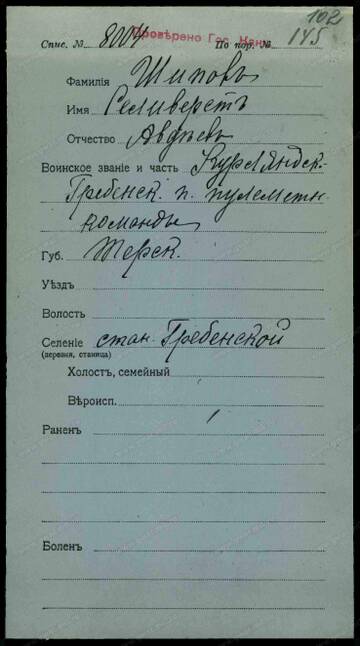 102
145
Провѣрено Гос. Кан
Спис. № 8004 По пор. №
Фамилія Шиповъ
Имя Селиверстъ
Отчество Авдѣевъ
Воинское званіе и часть Курляндск.
Гребенск. п. пулеметн.
команды
Губ. Терск.
Уѣздъ
Волость
Селеніе стан. Гребенской
(деревня, станица)
Холостъ, семейный
Вѣроисп.
Раненъ
Боленъ